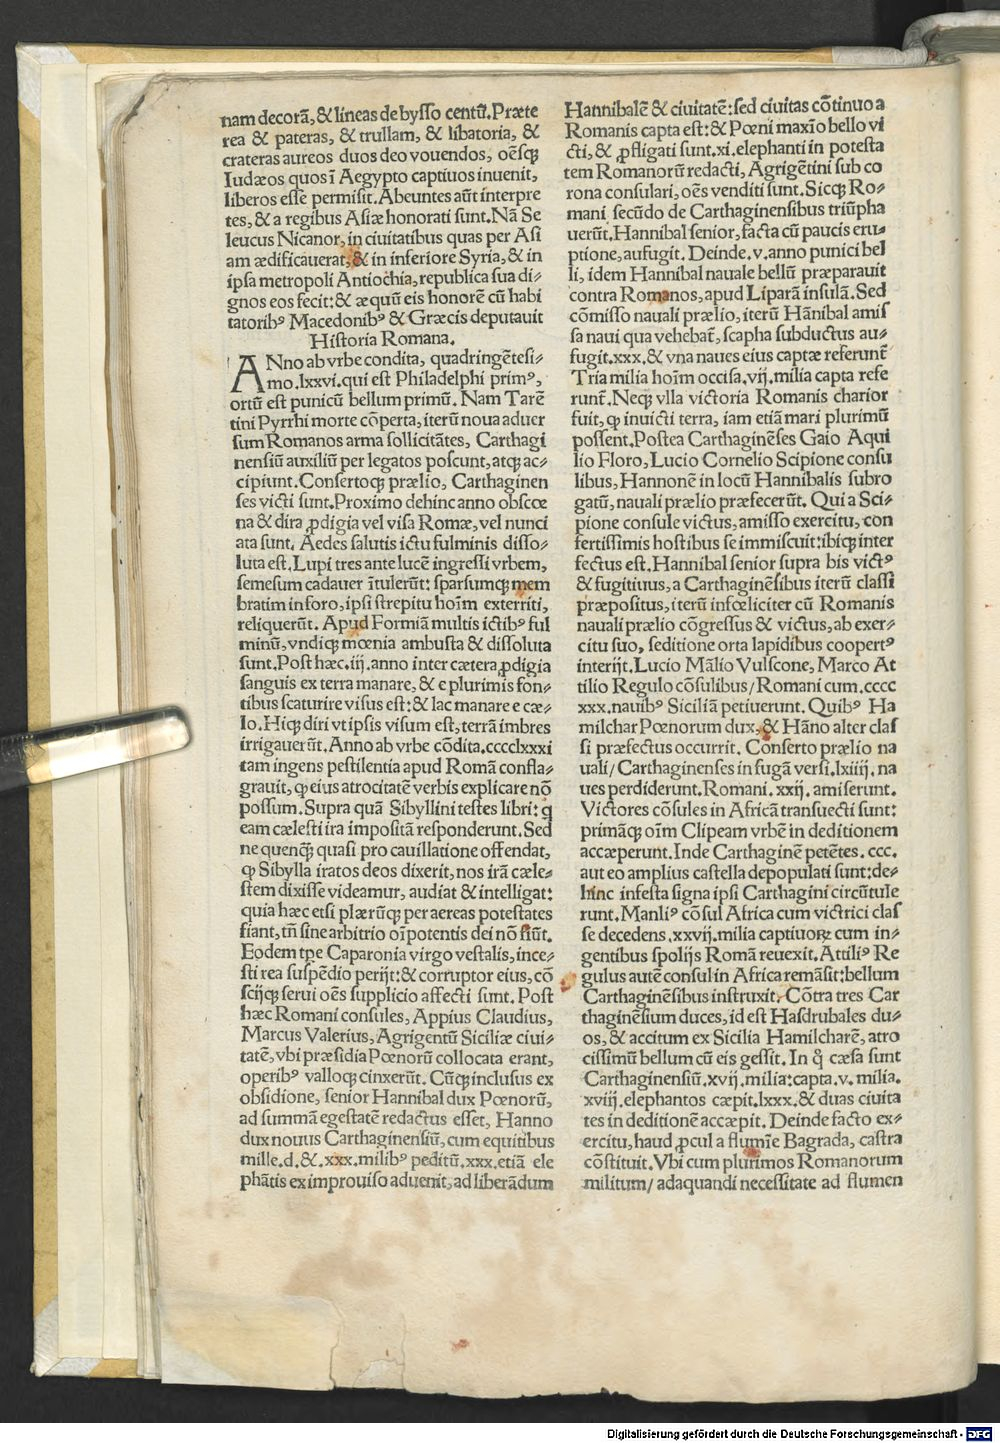 nam decorā, & lineas de bysso centū. Præte
rea & pateras, & trullam, & libatoria, &
crateras aureos duos deo vouendos, oēsqȝ
Iudæos quos ī Aegypto captiuos inuenit,
liberos esse permisit. Abeuntes aūt interpre
tes, & a regibus Asiæ honorati sunt. Nā Se
leucus Nicanor, in ciuitatibus quas per Asi
am ædificauerat, & in inferiore Syria, & in
ipsa metropoli Antiochia, republica sua di⸗
gnos eos fecit: & æquū eis honorē cū habi
tatoribꝰ Macedonibꝰ & Græcis deputauit
Historia Romana.
ANno ab vrbe condita, quadringētesi⸗
mo. lxxvi. qui est Philadelphi primꝰ,
ortū est punicū bellum primū. Nam Tarē
tini Pyrrhi morte cōperta, iterū noua aduer
sum Romanos arma sollicitātes, Carthagi
nensiū auxiliū per legatos poscunt, atqȝ ac⸗
cipiunt. Consertoqȝ prælio, Carthaginen
ses victi sunt. Proximo dehinc anno obscœ
na & dira ꝓdigia vel visa Romæ, vel nunci
ata sunt. Aedes salutis ictu fulminis disso⸗
luta est. Lupi tres ante lucē ingressi vrbem,
semesum cadauer ītulerūt: sparsumqȝ mem
bratim in foro, ipsi strepitu hoīm exterriti,
reliquerūt. Apud Formiā multis ictibꝰ ful
minū, vndiqȝ mœnia ambusta & dissoluta
sunt. Post hæc. iij. anno inter cætera ꝓdigia
sanguis ex terra manare, & e plurimis fon⸗
tibus scaturire visus est: & lac manare e cæ⸗
lo. Hiqȝ diri vt ipsis visum est, terrā imbres
irrigauerūt. Anno ab vrbe cōdita. cccclxxxi
tam ingens pestilentia apud Romā confla⸗
grauit, ꝙ eius atrocitatē verbis explicare nō
possum. Supra quā Sibyllini testes libri: q̄
eam cælesti ira impositā responderunt. Sed
ne quenqȝ quasi pro cauillatione offendat,
ꝙ Sibylla iratos deos dixerit, nos irā cæle⸗
stem dixisse videamur, audiat & intelligat:
quia hæc etsi plærūqȝ per aereas potestates
fiant, tn̄ sine arbitrio oīpotentis dei nō fiūt.
Eodem tꝑe Caparonia virgo vestalis, ince⸗
sti rea suspēdio perijt: & corruptor eius, cō
scijqȝ serui oēs supplicio affecti sunt. Post
hæc Romani consules, Appius Claudius,
Marcus Valerius, Agrigentū Siciliæ ciui⸗
tatē, vbi præsidia Pœnorū collocata erant,
operibꝰ valloqȝ cinxerūt. Cūqȝ inclusus ex
obsidione, senior Hannibal dux Pœnorū,
ad summā egestatē redactus esset, Hanno
dux nouus Carthaginensiū, cum equitibus
mille. d. &. xxx. milibꝰ peditū. xxx. etiā ele
phātis ex improuiso aduenit, ad liberādum
Hannibalē & ciuitatē: sed ciuitas cōtinuo a
Romanis capta est: & Pœni maxīo bello vi
cti, & ꝓfligati sunt. xi. elephanti in potesta
tem Romanorū redacti, Agrigētini sub co
rona consulari, oēs venditi sunt. Sicqȝ Ro⸗
mani secūdo de Carthaginensibus triūpha
uerūt. Hannibal senior, facta cū paucis eru⸗
ptione, aufugit. Deinde. v. anno punici bel
li, idem Hannibal nauale bellū præparauit
contra Romanos, apud Liparā insulā. Sed
cōmisso nauali prælio, iterū Hānibal amis
sa naui qua vehebat̄, scapha subductus au⸗
fugit. xxx. & vna naues eius captæ referunt̄
Tria milia hoīm occisa. vij. milia capta refe
runt̄. Neqȝ vlla victoria Romanis charior
fuit, ꝙ inuicti terra, iam etiā mari plurimū
possent. Postea Carthaginēses Gaio Aqui
lio Floro, Lucio Cornelio Scipione consu
libus, Hannonē in locū Hannibalis subro
gatū, nauali prælio præfecerūt. Qui a Sci⸗
pione consule victus, amisso exercitu, con
fertissimis hostibus se immiscuit: ibiqȝ inter
fectus est. Hannibal senior supra bis victꝰ
& fugitiuus, a Carthaginēsibus iterū classi
præpositus, iterū infœliciter cū Romanis
nauali prælio cōgressus & victus, ab exer⸗
citu suo, seditione orta lapidibus coopertꝰ
interijt. Lucio Mālio Vulscone, Marco At
tilio Regulo cōsulibus/ Romani cum. cccc
xxx. nauibꝰ Siciliā petiuerunt. Quibꝰ Ha
milchar Pœnorum dux, & Hāno alter clas
si præfectus occurrit. Conserto prælio na
uali/ Carthaginenses in fugā versi. lxiiij. na
ues perdiderunt. Romani. xxij. amiserunt.
Victores cōsules in Africā transuecti sunt:
primāqȝ oīm Clipeam vrbē in deditionem
accæperunt. Inde Carthaginē petētes. ccc.
aut eo amplius castella depopulati sunt: de⸗
hinc infesta signa ipsi Carthagini circūtule
runt. Manliꝰ cōsul Africa cum victrici clas
se decedens. xxvij. milia captiuoꝝ cum in⸗
gentibus spolijs Romā reuexit. Attiliꝰ Re
gulus autē consul in Africa remāsit: bellum
Carthaginēsibus instruxit. Cōtra tres Car
thaginēsium duces, id est Hasdrubales du⸗
os, & accitum ex Sicilia Hamilcharē, atro
cissimū bellum cū eis gessit. In q̊ cæsa sunt
Carthaginensiū. xvij. milia: capta. v. milia.
xviij. elephantos cæpit. lxxx. & duas ciuita
tes in deditionē accæpit. Deinde facto ex⸗
ercitu, haud ꝓcul a flumīe Bagrada, castra
cōstituit. Vbi cum plurimos Romanorum
militum/ adaquandi necessitate ad flumen
Digitalisierung gefördert durch die Deutsche Forschungsgemeinschaft - DFG